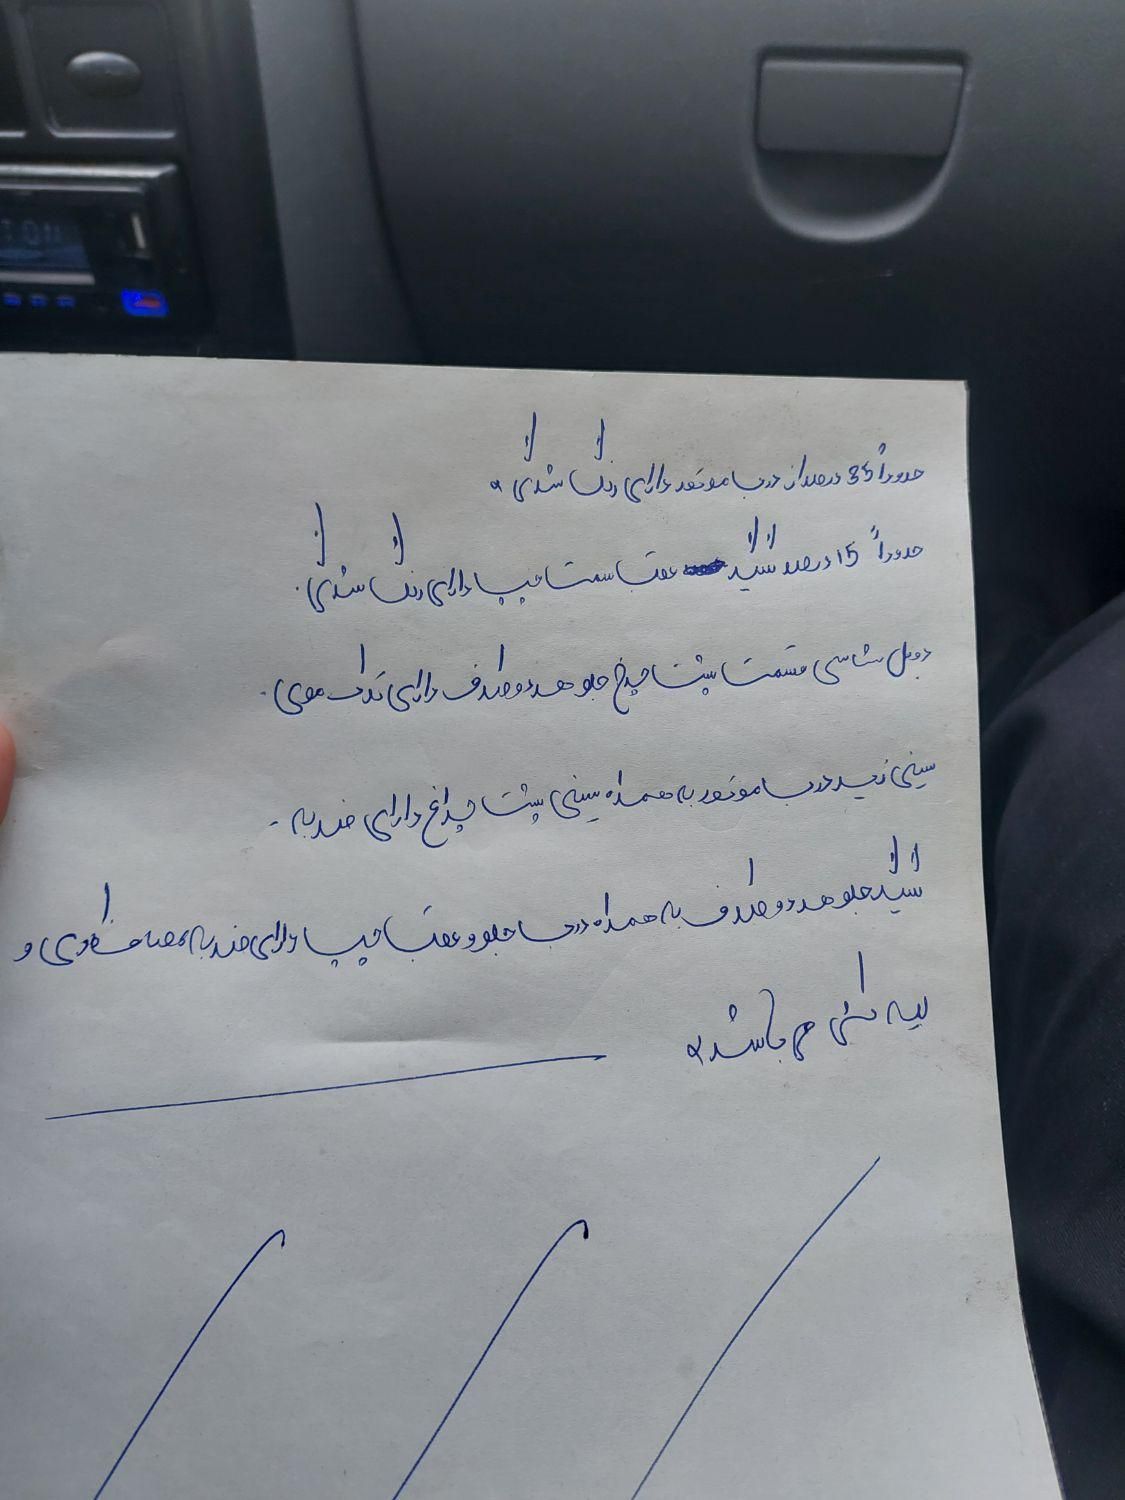 حدوداً 35 درصد از درب موتور دارای رنگ شدگی.
حدوداً 15 درصد گلگیر عقب سمت چپ دارای رنگ شدگی.
دوبل شاسی قسمت پشت چرخ جلو هر دو طرف دارای ترک موی.
سینی زیر درب موتور به همراه سینی پشت چراغ دارای ضربه.
گلگیر جلو هر دو طرف به همراه درب جلو و عقب چپ دارای ضربه صافکاری و
لیسه کشی می باشد.